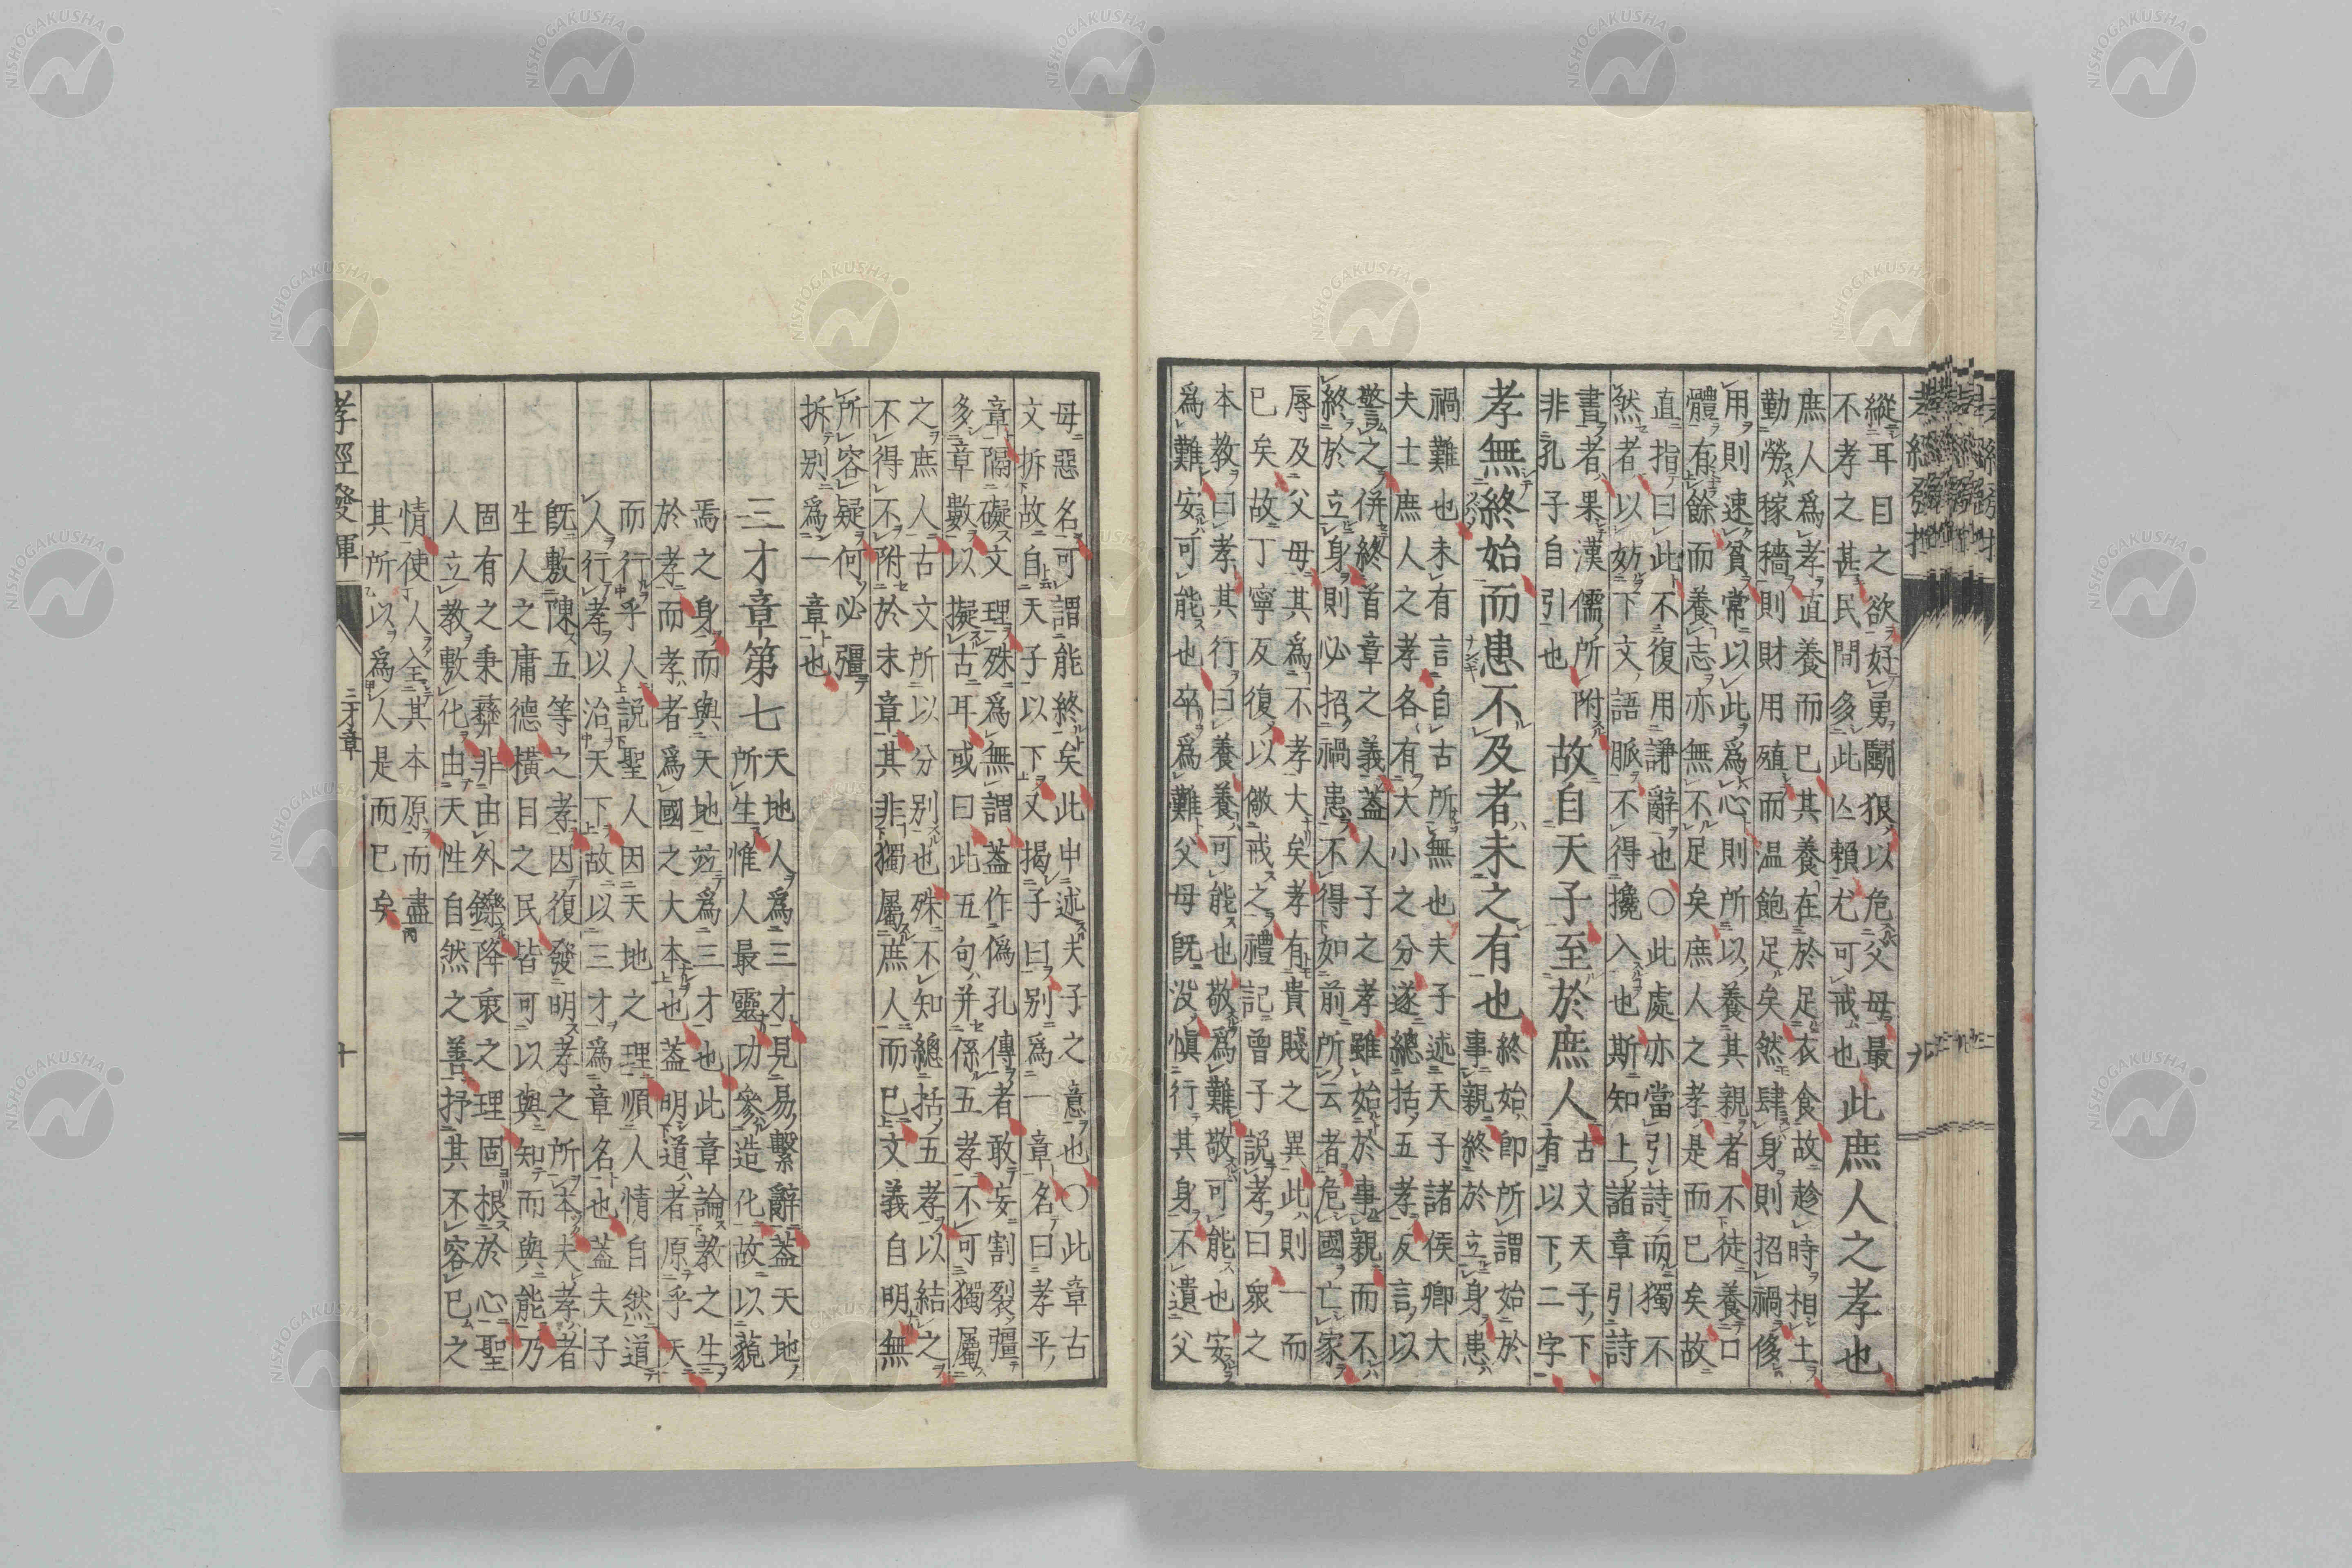 縱耳目之欲好勇鬪狠以危父母最
不孝之甚民間多此亾賴尤可戒也
此庶人之孝也
庶人爲孝直養而已其養在於足衣食故趁時相土
勤勞稼穡則財用殖而温飽足矣然肆身則招禍侈
用則速貧常以此爲心則所以養其親者不徒養口
體有餘而養志亦無不足矣庶人之孝是而已矣故
直指曰此不復用謙辭也〇此處亦當引詩而獨不
然者以妨下文語脈不得攙入也斯知上諸章引詩
書者果漢儒所附
非孔子自引也
故自天子至於庶人
古文天子下
有以下二字
孝無終始而患不及者未之有也
終始即所謂始於
事親終於立身患
禍難也未有言自古所無也夫子述天子諸侯卿大
夫士庶人之孝各有大小之分遂總括五孝反言以
警之併終首章之義蓋人子之孝雖始於事親而不
終於立身則必招禍患不得如前所云者危國亡家
辱及父母其爲不孝大矣孝有貴賤之異此則一而
已矣故丁寧反復以儆戒之禮記曾子說孝曰衆之
本教曰孝其行曰養養可能也敬爲難敬可能也安
爲難安可能也卒爲難父母既沒愼行其身不遺父
母惡名可謂能終矣此中述夫子之意也〇此章古
文拆故自天子以下又揭子曰别爲一章名曰孝平
章隔礙文理殊爲無謂蓋作僞孔傳者敢妄割裂彊
多章數以擬古耳或曰此五句并係五孝不可獨屬
之庶人古文所以分别也殊不知總括五孝以結之
不得不附於末章其非獨屬庶人而已文義自明無
所容疑何必彊
拆别爲一章也
三才章第七
天地人爲三才見易繫辭蓋天地
所生惟人最靈功參造化故以藐
焉之身而與天地竝爲三才也此章論教之生
於孝而孝者爲國之大本也蓋明道者原乎天
而行乎人說聖人因天地之理順人情自然道
人行孝以治天下故以三才爲章名也蓋夫子
既敷陳五等之孝因復發明孝之所本夫孝者
生人之庸德橫目之民皆可以與知而與能乃
固有之秉彝非由外鑠降衷之理固根於心聖
人立教敷化由天性自然之善抒其不容已之
情使人全其本原而盡
其所以爲人是而已矣
孝經發揮
三才章
十